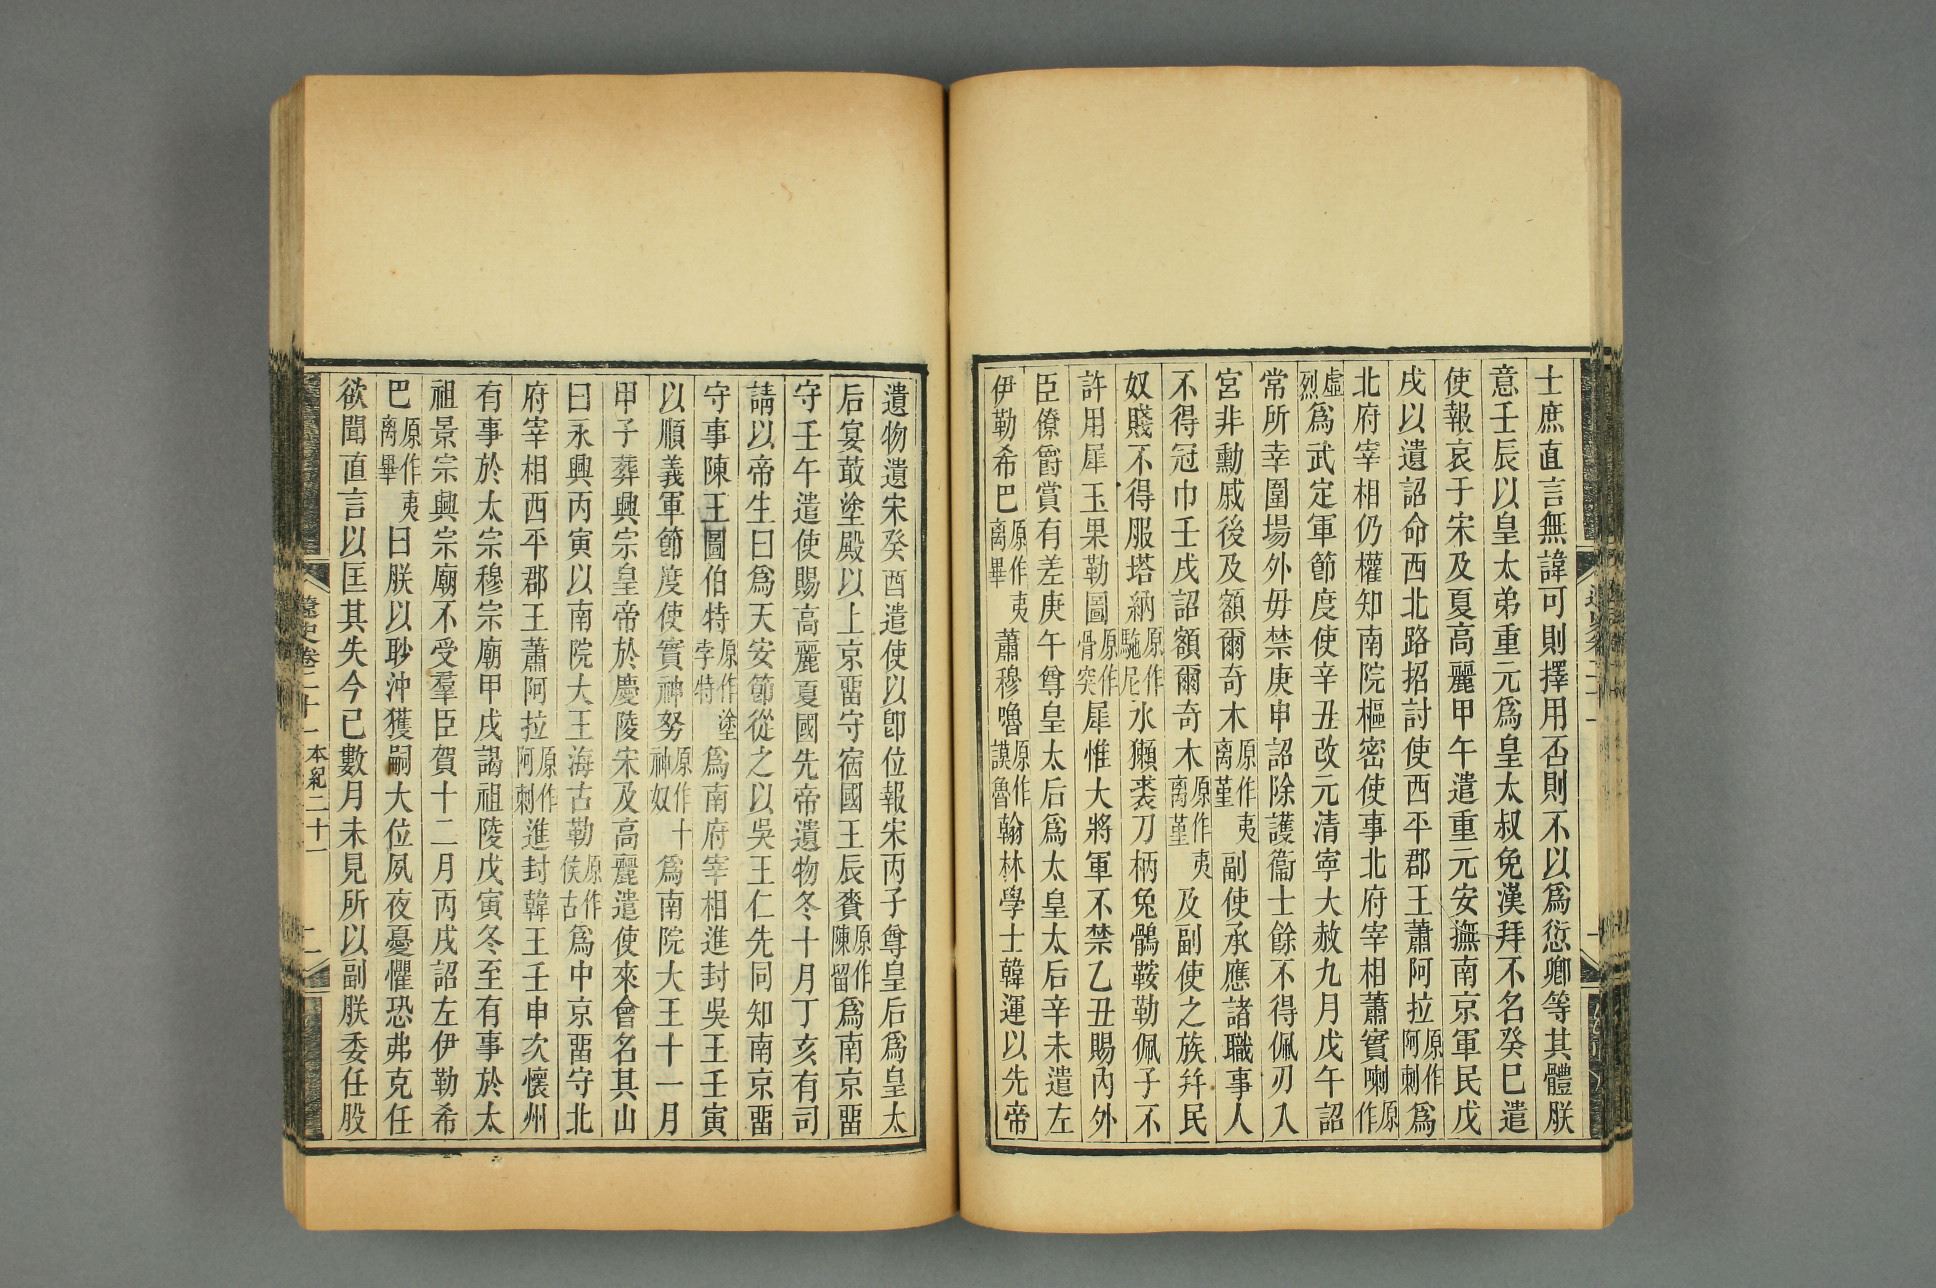 士庶直言無諱可則擇用否則不以爲愆卿等其體朕
意壬辰以皇太弟重元爲皇太叔免漢拜不名癸巳遣
使報哀于宋及夏高麗甲午遣重元安撫南京軍民戊
戌以遺詔命西北路招討使西平郡王蕭阿拉原作阿剌爲
北府宰相仍權知南院樞密使事北府宰相蕭實喇原作
虛烈爲武定軍節度使辛丑改元清寧大赦九月戊午詔
常所幸圍場外毋禁庚申詔除護衞士餘不得佩刃入
宮非勳戚後及額爾奇木原作夷离堇副使承應諸職事人
不得冠巾壬戌詔額爾奇木原作夷离堇及副使之族幷民
奴賤不得服塔納原作駞尼水獺裘刀柄兔鶻鞍勒佩子不
許用犀玉果勒圖原作骨突犀惟大將軍不禁乙丑賜內外
臣僚爵賞有差庚午尊皇太后爲太皇太后辛未遣左
伊勒希巴原作夷离畢蕭穆嚕原作謨魯翰林學士韓運以先帝
遺物遺宋癸酉遣使以卽位報宋丙子尊皇后爲皇太
后宴菆塗殿以上京畱守宿國王辰賚原作陳留爲南京畱
守壬午遣使賜高麗夏國先帝遺物冬十月丁亥有司
請以帝生日爲天安節從之以吳王仁先同知南京畱
守事陳王圖伯特原作塗孛特爲南府宰相進封吳王壬寅
以順義軍節度使實神努原作十神奴爲南院大王十一月
甲子葬興宗皇帝於慶陵宋及高麗遣使來會名其山
曰永興丙寅以南院大王海古勒原作侯古爲中京畱守北
府宰相西平郡王蕭阿拉原作阿剌進封韓王壬申次懷州
有事於太宗穆宗廟甲戌謁祖陵戊寅冬至有事於太
祖景宗興宗廟不受羣臣賀十二月丙戌詔左伊勒希
巴原作夷离畢曰朕以眇沖獲嗣大位夙夜憂懼恐弗克任
欲聞直言以匡其失今已數月未見所以副朕委任股
遼史卷二十一 本紀二十一 二